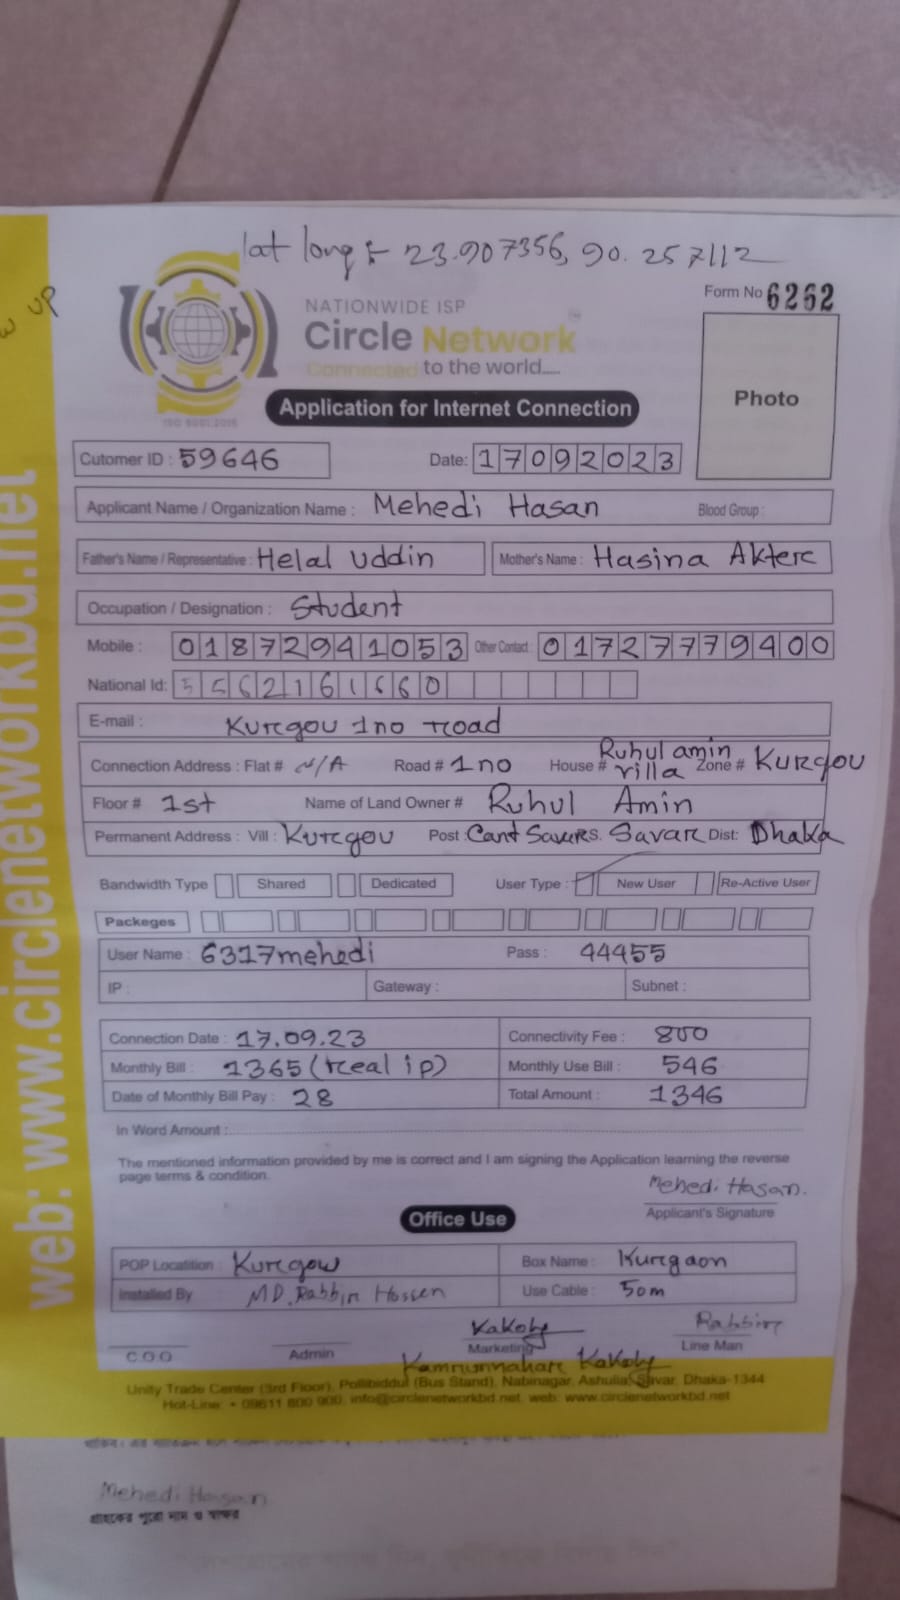 lat long :- 23.907356, 90.257112
W UP
NATIONWIDE ISP
Form No 6262
Circle Network
Connected to the world.....
ISO 9001:2015
Application for Internet Connection
Photo
Cutomer ID : 59646 Date: 17092023
Applicant Name / Organization Name : Mehedi Hasan Blood Group :
Father's Name / Representative : Helal Uddin Mother's Name : Hasina Akter
Occupation / Designation : Student
Mobile : 01872941053 Other Contact : 01727779400
National Id:
E-mail : Kurgou 1no road
Connection Address : Flat # N/A Road # 1no House # Ruhul amin villa Zone # Kurgou
Floor # 1st Name of Land Owner # Ruhul Amin
Permanent Address : Vill : Kurgou Post : Cant Savar P.S. Savar Dist: Dhaka
Bandwidth Type Shared Dedicated User Type : New User Re-Active User
Packeges
User Name : 6317mehedi Pass : 44455
IP : Gateway : Subnet :
Connection Date : 17.09.23 Connectivity Fee : 800
Monthly Bill : 1365 (real ip) Monthly Use Bill : 546
Date of Monthly Bill Pay : 28 Total Amount : 1346
In Word Amount :
The mentioned information provided by me is correct and I am signing the Application learning the reverse
page terms & condition.
Mehedi Hasan.
Applicant's Signature
Office Use
POP Locatition : Kurgow Box Name : Kurgaon
Installed By MD. Rabbin Hossen Use Cable : 50m
Kakoly Rabbin
C.O.O Admin Marketing Line Man
Kamrunnahar Kakoly
Unity Trade Center (3rd Floor), Pollibiddut (Bus Stand), Nabinagar, Ashulia, Savar, Dhaka-1344
Hot-Line: + 09611 800 900, info@circlenetworkbd.net, web: www.circlenetworkbd.net
web: www.circlenetworkbd.net
Mehedi Hasan
গ্রাহকের পুরো নাম ও স্বাক্ষর